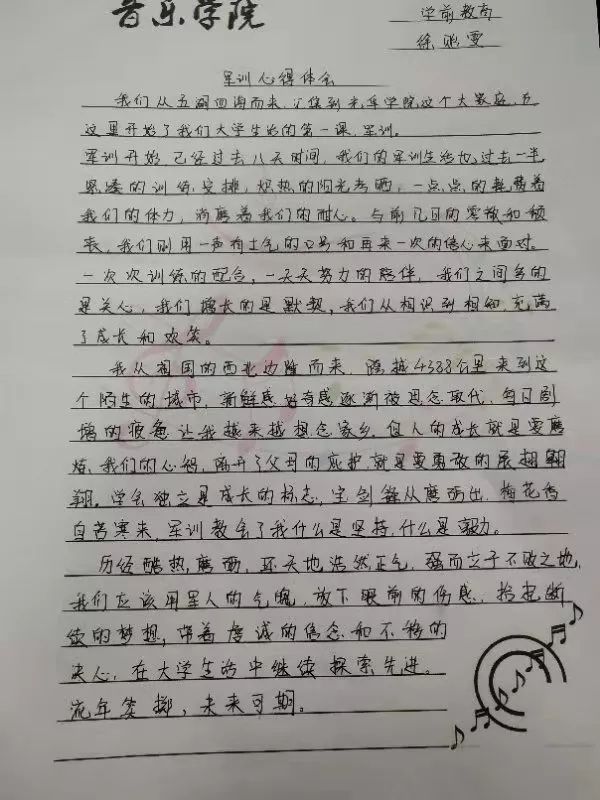 音乐学院
学前教育
徐 雯
军训心得体会
我们从五湖四海而来,汇集到 学院这个大家庭,在
这里开始了我们大学生活的第一课,军训。
军训开始已经过去八天时间,我们的军训生活也过去一半
紧凑的训练安排,炽热的阳光考晒,一点点的耗费着
我们的体力,消磨着我们的耐心。与前几日的零散和颓
丧,我们则用一声有士气的口号和再来一次的信心来面对。
一次次训练的配合,一天天努力的陪伴,我们之间多的
是关心,我们增长的是默契,我们从相识到相知,充满
了成长和欢笑。
我从祖国的西北边陲而来,跨越4388公里来到这
个陌生的城市,新鲜感好奇感逐渐被思念取代,每日剧
增的疲惫让我越来越想念家乡,但人的成长就是要磨
炼我们的心智,离开了父母的庇护就是要勇敢的展翅翱
翔。学会独立是成长的标志,宝剑锋从磨砺出,梅花香
自苦寒来,军训教会了我什么是坚持,什么是毅力。
历经酷热磨砺,环天地浩然正气,强而立于不败之地,
我们应该用军人的气魄,放下眼前的伤感,拾起断
续的梦想,带着虔诚的信念和不移的
决心,在大学生活中继续探索先进。
流年笑掷,未来可期。